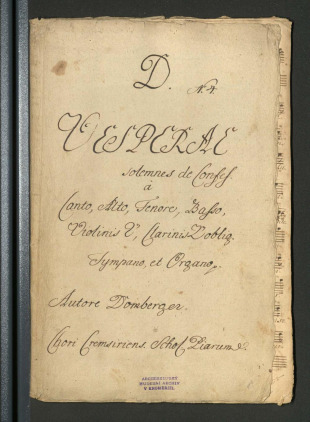 D.
N. 4.
VESPERAE
solemnes de Confes
à
Canto, Alto, Tenore, Basso,
Violinis 2, Clarinis 2 obliq.
Tympano, et Organo.
Autore Domberger.
Chori Cremsiriens. Schol. Piarum
ARCIBISKUPSKÝ
HUDEBNÍ ARCHIV
V KROMĚŘÍŽI.